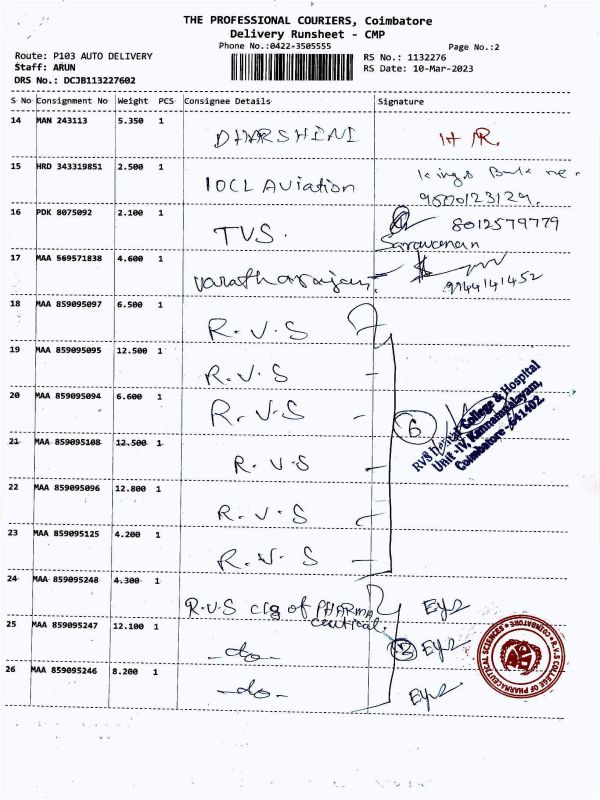 THE PROFESSIONAL COURIERS, Coimbatore
Delivery Runsheet - CMP
Phone No.:0422-3505555 Page No.:2
Route: P103 AUTO DELIVERY RS No.: 1132276
Staff: ARUN RS Date: 10-Mar-2023
DRS No.: DCJB113227602
S No Consignment No Weight PCS Consignee Details Signature
14 MAN 243113 5.350 1 DHARSHINI HR.
15 HRD 343319851 2.500 1 IOCL Aviation
9600123129.
16 PDK 8075092 2.100 1 TVS. 8012579779
Saravanan
17 MAA 569571838 4.600 1 varatharajan.
9944141452
18 MAA 859095097 6.500 1 R.V.S
19 MAA 859095095 12.500 1 R.V.S
20 MAA 859095094 6.600 1 R.V.S 6
RVS College & Hospital
Unit-IV, Kannampalayam,
Coimbatore-641402
21 MAA 859095108 12.500 1 R.V.S
22 MAA 859095096 12.800 1 R.V.S
23 MAA 859095125 4.200 1 R.V.S
24 MAA 859095248 4.300 1 R.V.S clg of PHARMA
ceutical.
25 MAA 859095247 12.100 1 -do-
26 MAA 859095246 8.200 1 -do-
R.V.S COLLEGE OF PHARMACEUTICAL SCIENCES COIMBATORE